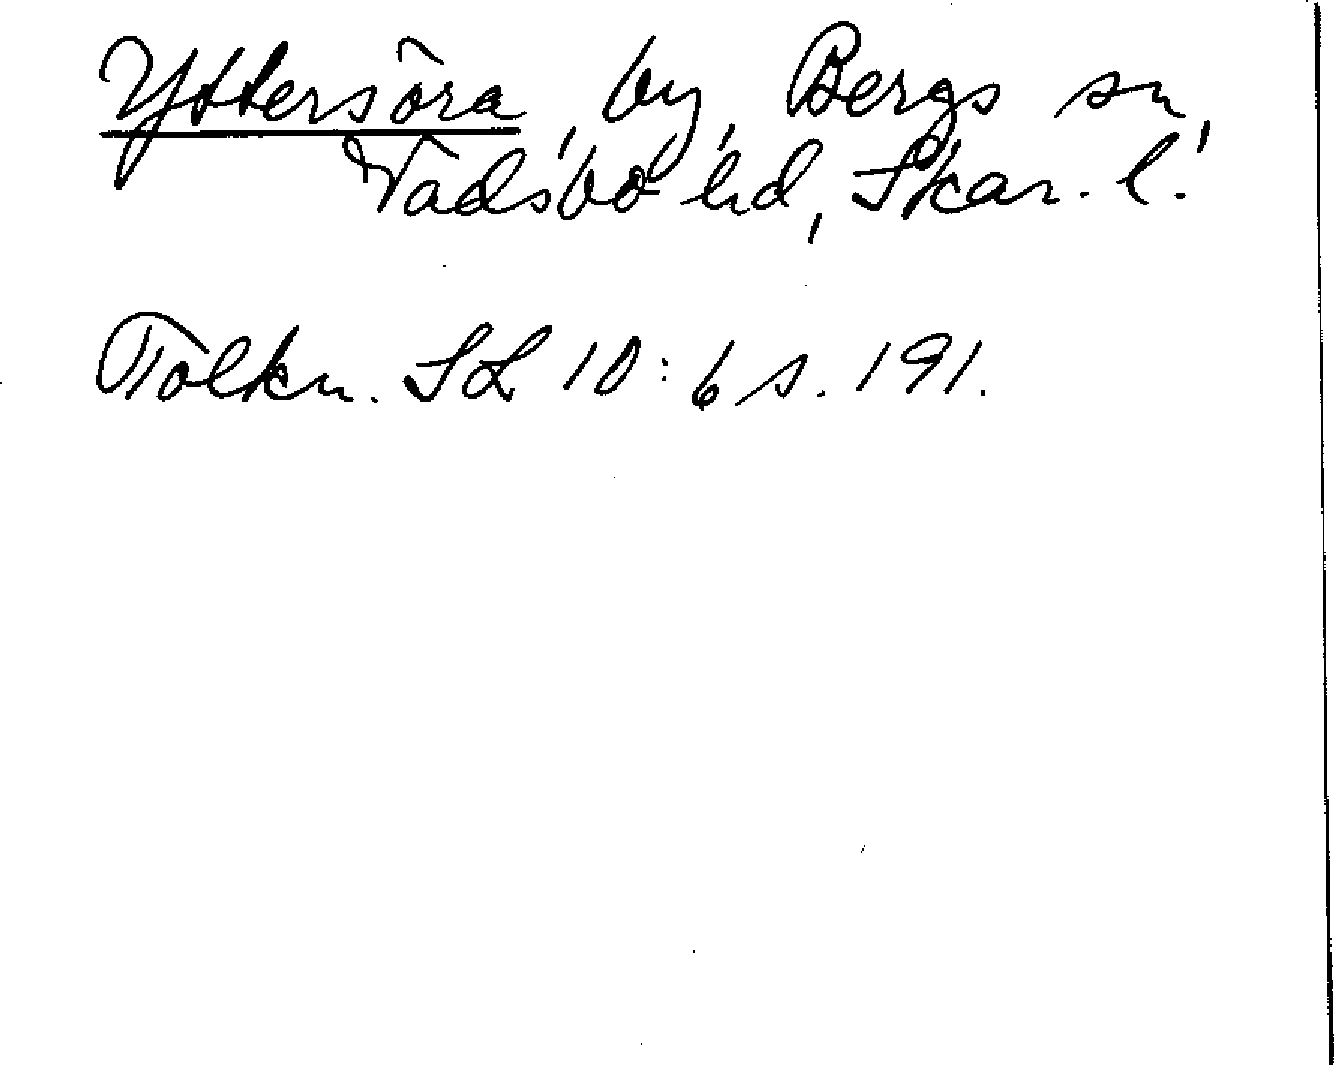 Yttersöra, by, Bergs sn,
Vadsbo hd, Skar. l.
Tolkn. SL 10:6 s. 191.